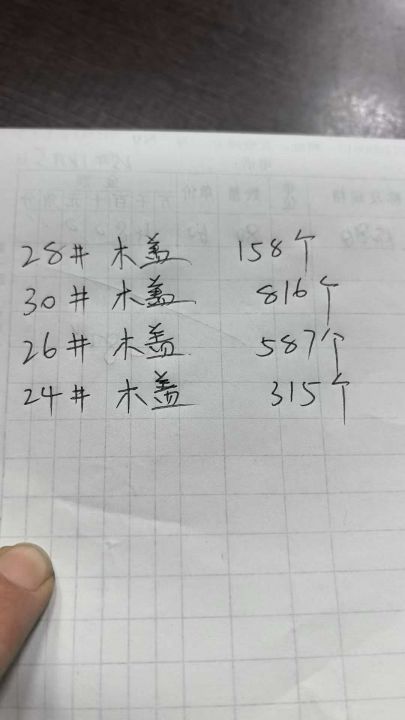 28# 木盖 158个
30# 木盖 816个
26# 木盖 587个
24# 木盖 315个